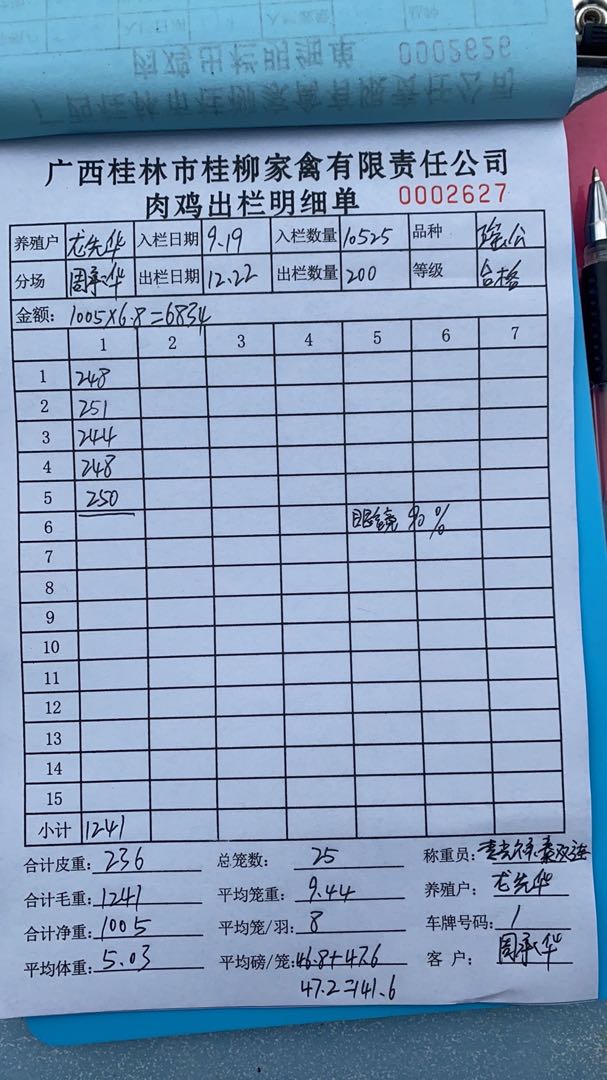 肉鸡出栏明细单 0002626
广西桂林市桂柳家禽有限责任公司
广西桂林市桂柳家禽有限责任公司
肉鸡出栏明细单 0002627
养殖户 龙先华 入栏日期 9.19 入栏数量 10525 品种
分场 周承华 出栏日期 12.22 出栏数量 200 等级 合格
金额: 1005×6.8=6834
1 2 3 4 5 6 7
1 248
2 251
3 244
4 248
5 250
6 眼镜 90%
7
8
9
10
11
12
13
14
15
小计 1241
合计皮重: 236 总笼数: 25 称重员:
合计毛重: 1241 平均笼重: 9.44 养殖户: 龙先华
合计净重: 1005 平均笼/羽: 8 车牌号码: 1
平均体重: 5.03 平均磅/笼: 46.8+47.6 客 户: 周承华
47.2=141.6